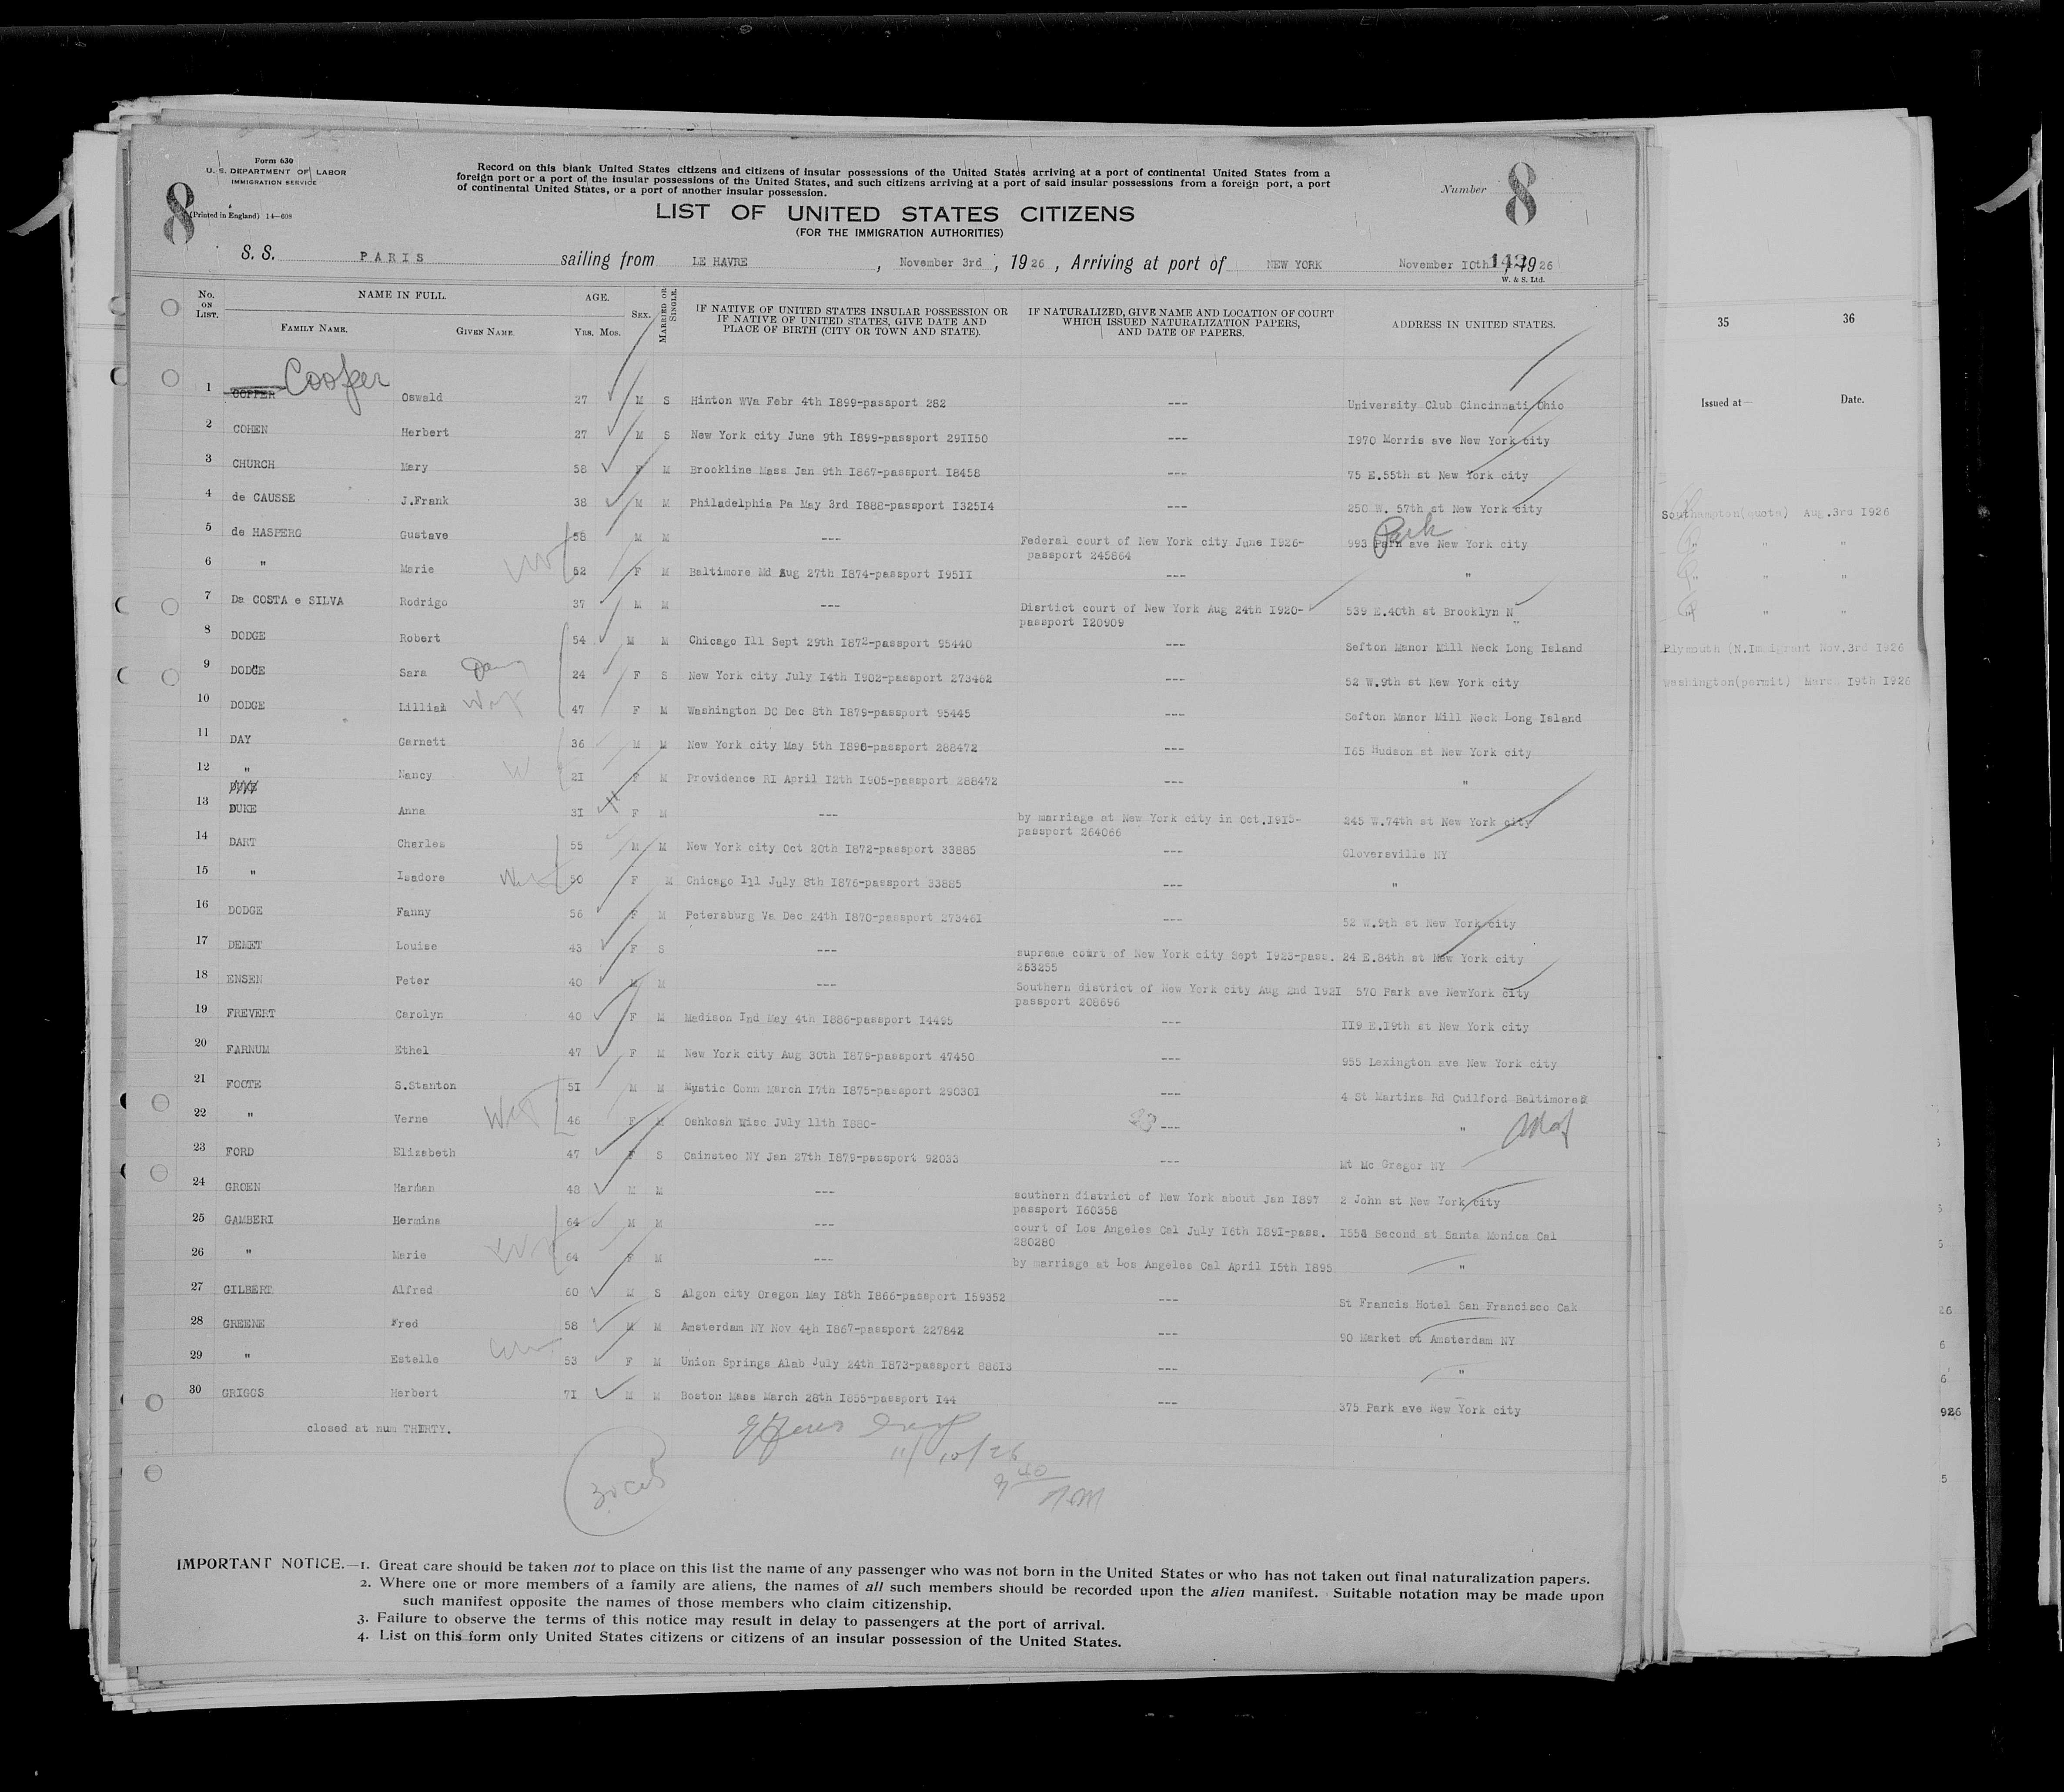 Form 630
U. S. DEPARTMENT OF LABOR
IMMIGRATION SERVICE
(Printed in England) 14—609
8
Record on this blank United States citizens and citizens of insular possessions of the United States arriving at a port of continental United States from a
foreign port or a port of the insular possessions of the United States, and such citizens arriving at a port of said insular possessions from a foreign port, a port
of continental United States, or a port of another insular possession.
Number 8
LIST OF UNITED STATES CITIZENS
(FOR THE IMMIGRATION AUTHORITIES)
S. S. PARIS sailing from LE HAVRE , November 3rd , 1926 , Arriving at port of NEW YORK November 10th , 1926
W. & S. Ltd.
No. ON LIST. NAME IN FULL. FAMILY NAME. GIVEN NAME. AGE. YRS. MOS. SEX. MARRIED OR SINGLE. IF NATIVE OF UNITED STATES INSULAR POSSESSION OR IF NATIVE OF UNITED STATES, GIVE DATE AND PLACE OF BIRTH (CITY OR TOWN AND STATE). IF NATURALIZED, GIVE NAME AND LOCATION OF COURT WHICH ISSUED NATURALIZATION PAPERS, AND DATE OF PAPERS. ADDRESS IN UNITED STATES.
35 36
Issued at— Date.
1 COPPER Cooper Oswald 27 M S Hinton WVa Febr 4th I899-passport 282 --- University Club Cincinnati Ohio
2 COHEN Herbert 27 M S New York city June 9th I899-passport 29II50 --- I970 Morris ave New York city
3 CHURCH Mary 58 F M Brookline Mass Jan 9th I867-passport I8458 --- 75 E.55th st New York city
4 de CAUSSE J.Frank 38 M M Philadelphia Pa May 3rd I888-passport I325I4 --- 250 W. 57th st New York city
Southampton(quota) Aug.3rd I926
5 de HASPERG Gustave 58 M M --- Federal court of New York city June I926- 993 Park ave New York city
passport 245864
6 " Marie wf 52 F M Baltimore Md Aug 27th I874-passport I95II --- "
7 Da COSTA e SILVA Rodrigo 37 M M --- Disrtict court of New York Aug 24th I920- 539 E.40th st Brooklyn N
passport I20909
8 DODGE Robert 54 M M Chicago Ill Sept 29th I872-passport 95440 --- Sefton Manor Mill Neck Long Island
Plymouth (N.Immigrant Nov.3rd I926
9 DODGE Sara 24 F S New York city July I4th I902-passport 273462 --- 52 W.9th st New York city
Washington(permit) March I9th I926
10 DODGE Lillian 47 F M Washington DC Dec 8th I879-passport 95445 --- Sefton Manor Mill Neck Long Island
11 DAY Garnett 36 M M New York city May 5th I890-passport 288472 --- I65 Hudson st New York city
12 " Nancy 2I F M Providence RI April I2th I905-passport 288472 --- "
13 DUKE Anna 3I F M --- by marriage at New York city in Oct.I915- 245 W.74th st New York city
passport 264066
14 DART Charles 55 M M New York city Oct 20th I872-passport 33885 --- Gloversville NY
15 " Isadore 50 F M Chicago Ill July 8th I876-passport 33885 --- "
16 DODGE Fanny 56 F M Petersburg Va Dec 24th I870-passport 27346I --- 52 W.9th st New York city
17 DEMET Louise 43 F S --- supreme court of New York city Sept I923-pass. 24 E.84th st New York city
263255
18 ENSEN Peter 40 M M --- Southern district of New York city Aug 2nd I92I 570 Park ave NewYork city
passport 208696
19 FREVERT Carolyn 40 F M Madison Ind May 4th I886-passport I4495 --- II9 E.I9th st New York city
20 FARNUM Ethel 47 F M New York city Aug 30th I879-passport 47450 --- 955 Lexington ave New York city
21 FOOTE S.Stanton 5I M M Mystic Conn March I7th I875-passport 29030I --- 4 St Martins Rd Guilford Baltimore
22 " Verne 46 F M Oshkosh Wisc July 11th I880- --- "
23 FORD Elizabeth 47 F S Cainsteo NY Jan 27th I879-passport 92033 --- Mt Mc Gregor NY
24 GROEN Harman 48 M M --- southern district of New York about Jan I897 2 John st New York city
passport I60358
25 GAMBERI Hermina 64 M M --- court of Los Angeles Cal July I6th I89I-pass. Second st Santa Monica Cal
280280
26 " Marie 64 F M --- by marriage at Los Angeles Cal April I5th I895 "
27 GILBERT Alfred 60 M S Algon city Oregon May I8th I866-passport I59352 --- St Francis Hotel San Francisco Cak
28 GREENE Fred 58 M M Amsterdam NY Nov 4th I867-passport 227842 --- 90 Market st Amsterdam NY
29 " Estelle 53 F M Union Springs Alab July 24th I873-passport 886I3 --- "
30 GRIGGS Herbert 7I M M Boston Mass March 28th I855-passport I44 --- 375 Park ave New York city
closed at num THIRTY.
11/10/26
IMPORTANT NOTICE.—1. Great care should be taken not to place on this list the name of any passenger who was not born in the United States or who has not taken out final naturalization papers.
2. Where one or more members of a family are aliens, the names of all such members should be recorded upon the alien manifest. Suitable notation may be made upon
such manifest opposite the names of those members who claim citizenship.
3. Failure to observe the terms of this notice may result in delay to passengers at the port of arrival.
4. List on this form only United States citizens or citizens of an insular possession of the United States.